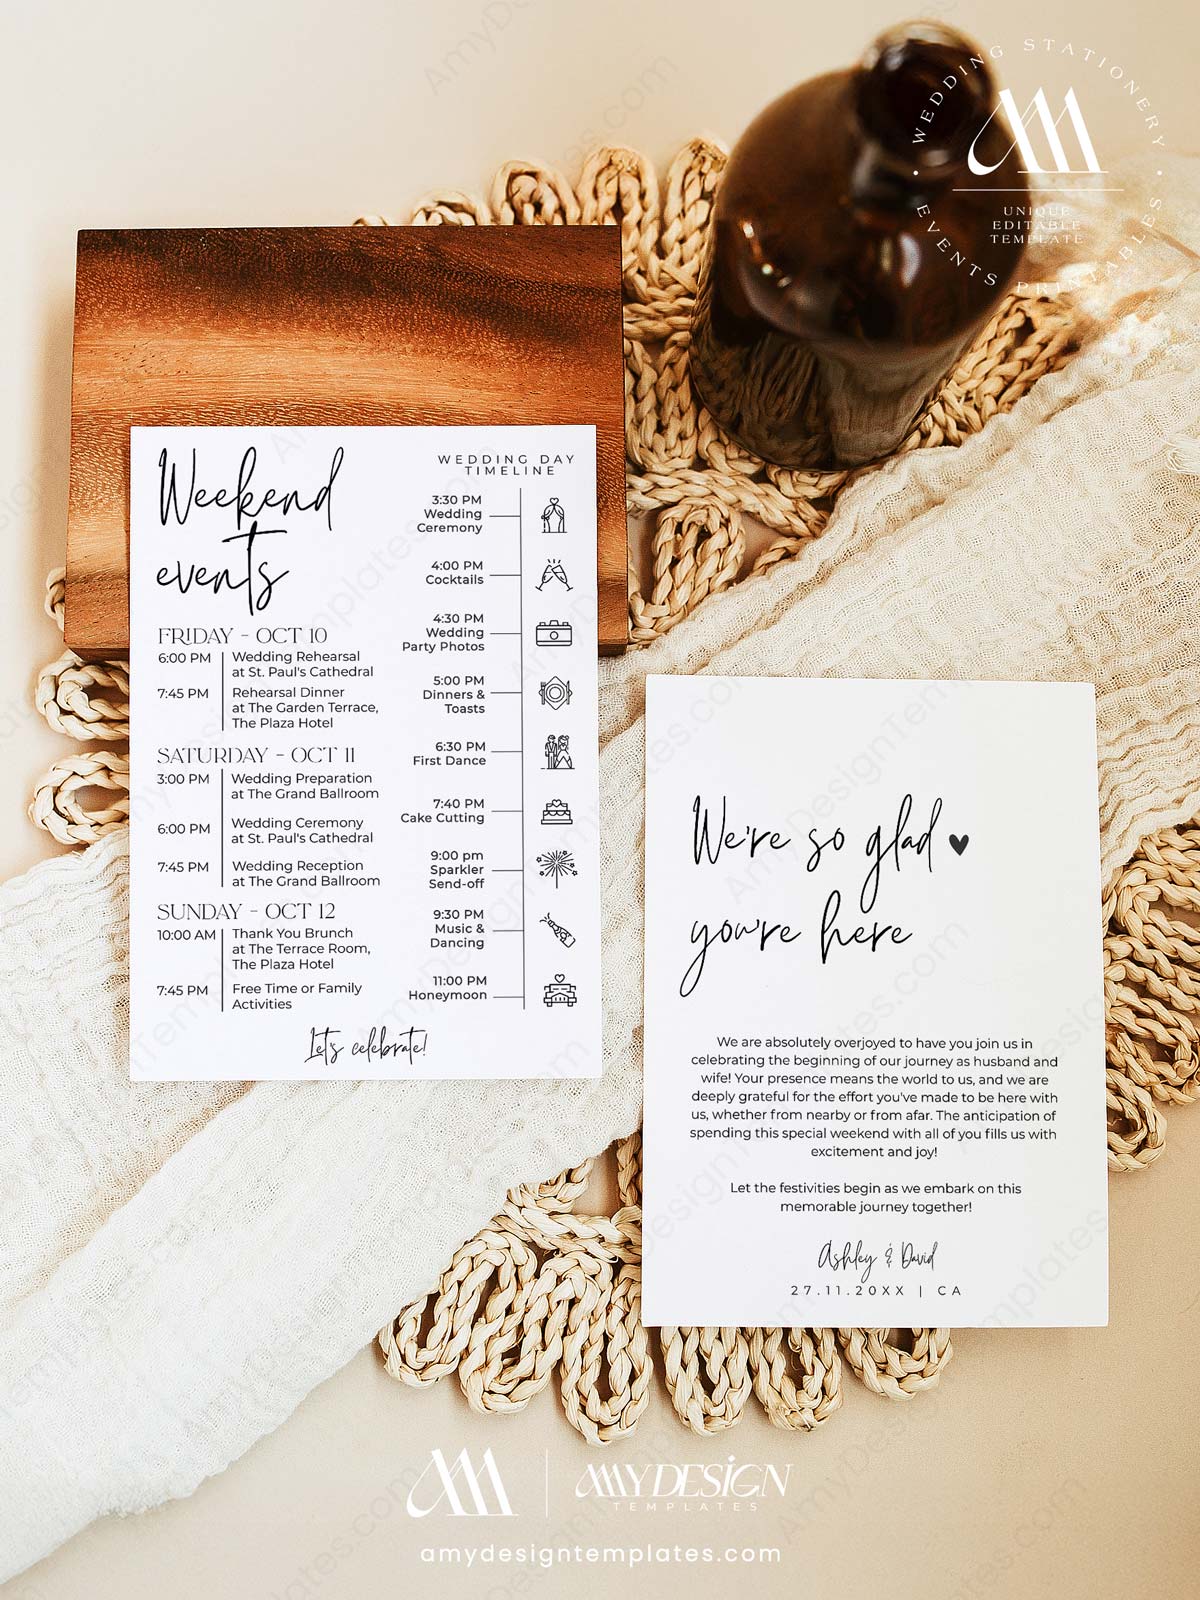 WEDDING STATIONERY
UNIQUE
EDITABLE
TEMPLATE
EVENTS PRINTABLES
Weekend
events
FRIDAY - OCT 10
6:00 PM Wedding Rehearsal
at St. Paul's Cathedral
7:45 PM Rehearsal Dinner
at The Garden Terrace,
The Plaza Hotel
SATURDAY - OCT 11
3:00 PM Wedding Preparation
at The Grand Ballroom
6:00 PM Wedding Ceremony
at St. Paul's Cathedral
7:45 PM Wedding Reception
at The Grand Ballroom
SUNDAY - OCT 12
10:00 AM Thank You Brunch
at The Terrace Room,
The Plaza Hotel
7:45 PM Free Time or Family
Activities
WEDDING DAY
TIMELINE
3:30 PM
Wedding
Ceremony
4:00 PM
Cocktails
4:30 PM
Wedding
Party Photos
5:00 PM
Dinners &
Toasts
6:30 PM
First Dance
7:40 PM
Cake Cutting
9:00 pm
Sparkler
Send-off
9:30 PM
Music &
Dancing
11:00 PM
Honeymoon
Let's celebrate!
We're so glad ♥
you're here
We are absolutely overjoyed to have you join us in
celebrating the beginning of our journey as husband and
wife! Your presence means the world to us, and we are
deeply grateful for the effort you've made to be here with
us, whether from nearby or from afar. The anticipation of
spending this special weekend with all of you fills us with
excitement and joy!
Let the festivities begin as we embark on this
memorable journey together!
Ashley & David
27.11.20XX | CA
AMYDESIGN
TEMPLATES
amydesigntemplates.com